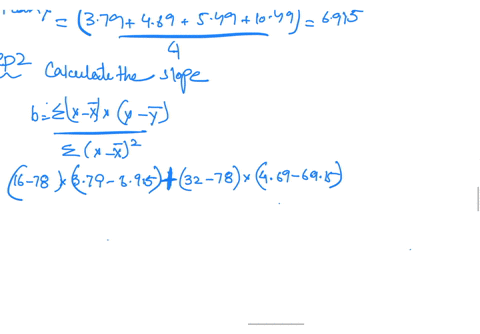 = (3.79 + 4.69 + 5.49 + 10.49) = 6.915
4
ep2 Calculate the slope
b = Σ(x-x̄) * (y-ȳ)
Σ(x-x̄)²
(16-78) * (3.79-6.915) + (32-78) * (4.69-69.15)